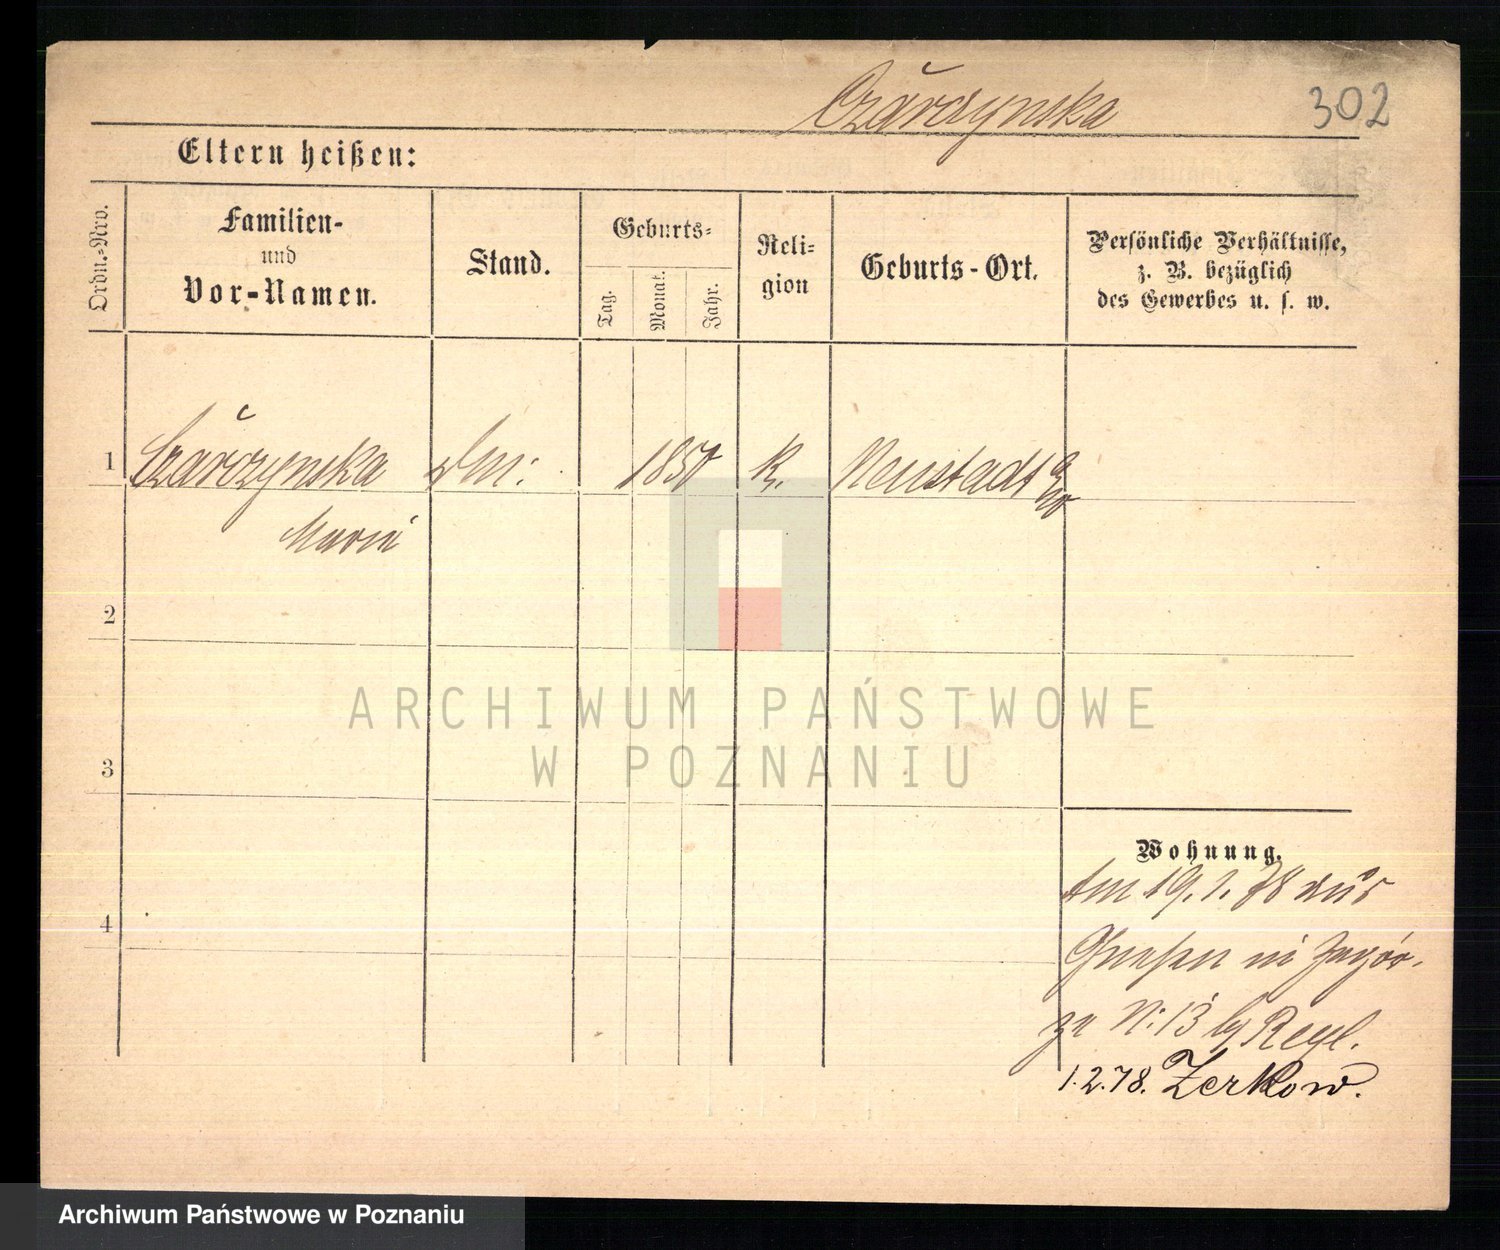 Czarczynska
302
Eltern heißen:
Ordn.-Nro.
Familien-
und
Vor-Namen.
Stand.
Geburts-
Tag.
Monat.
Jahr.
Reli-
gion
Geburts-Ort.
Persönliche Verhältnisse,
z. B. bezüglich
des Gewerbes u. s. w.
1
Czarczynska
1850
K.
Neustadt
Marie
2
3
4
ARCHIWUM PAŃSTWOWE
W POZNANIU
Wohnung.
Am 19.1.78 aus
Gnesen in Zagór-
ze N: 13 by Regl.
1.2.78. Zerkow.
Archiwum Państwowe w Poznaniu